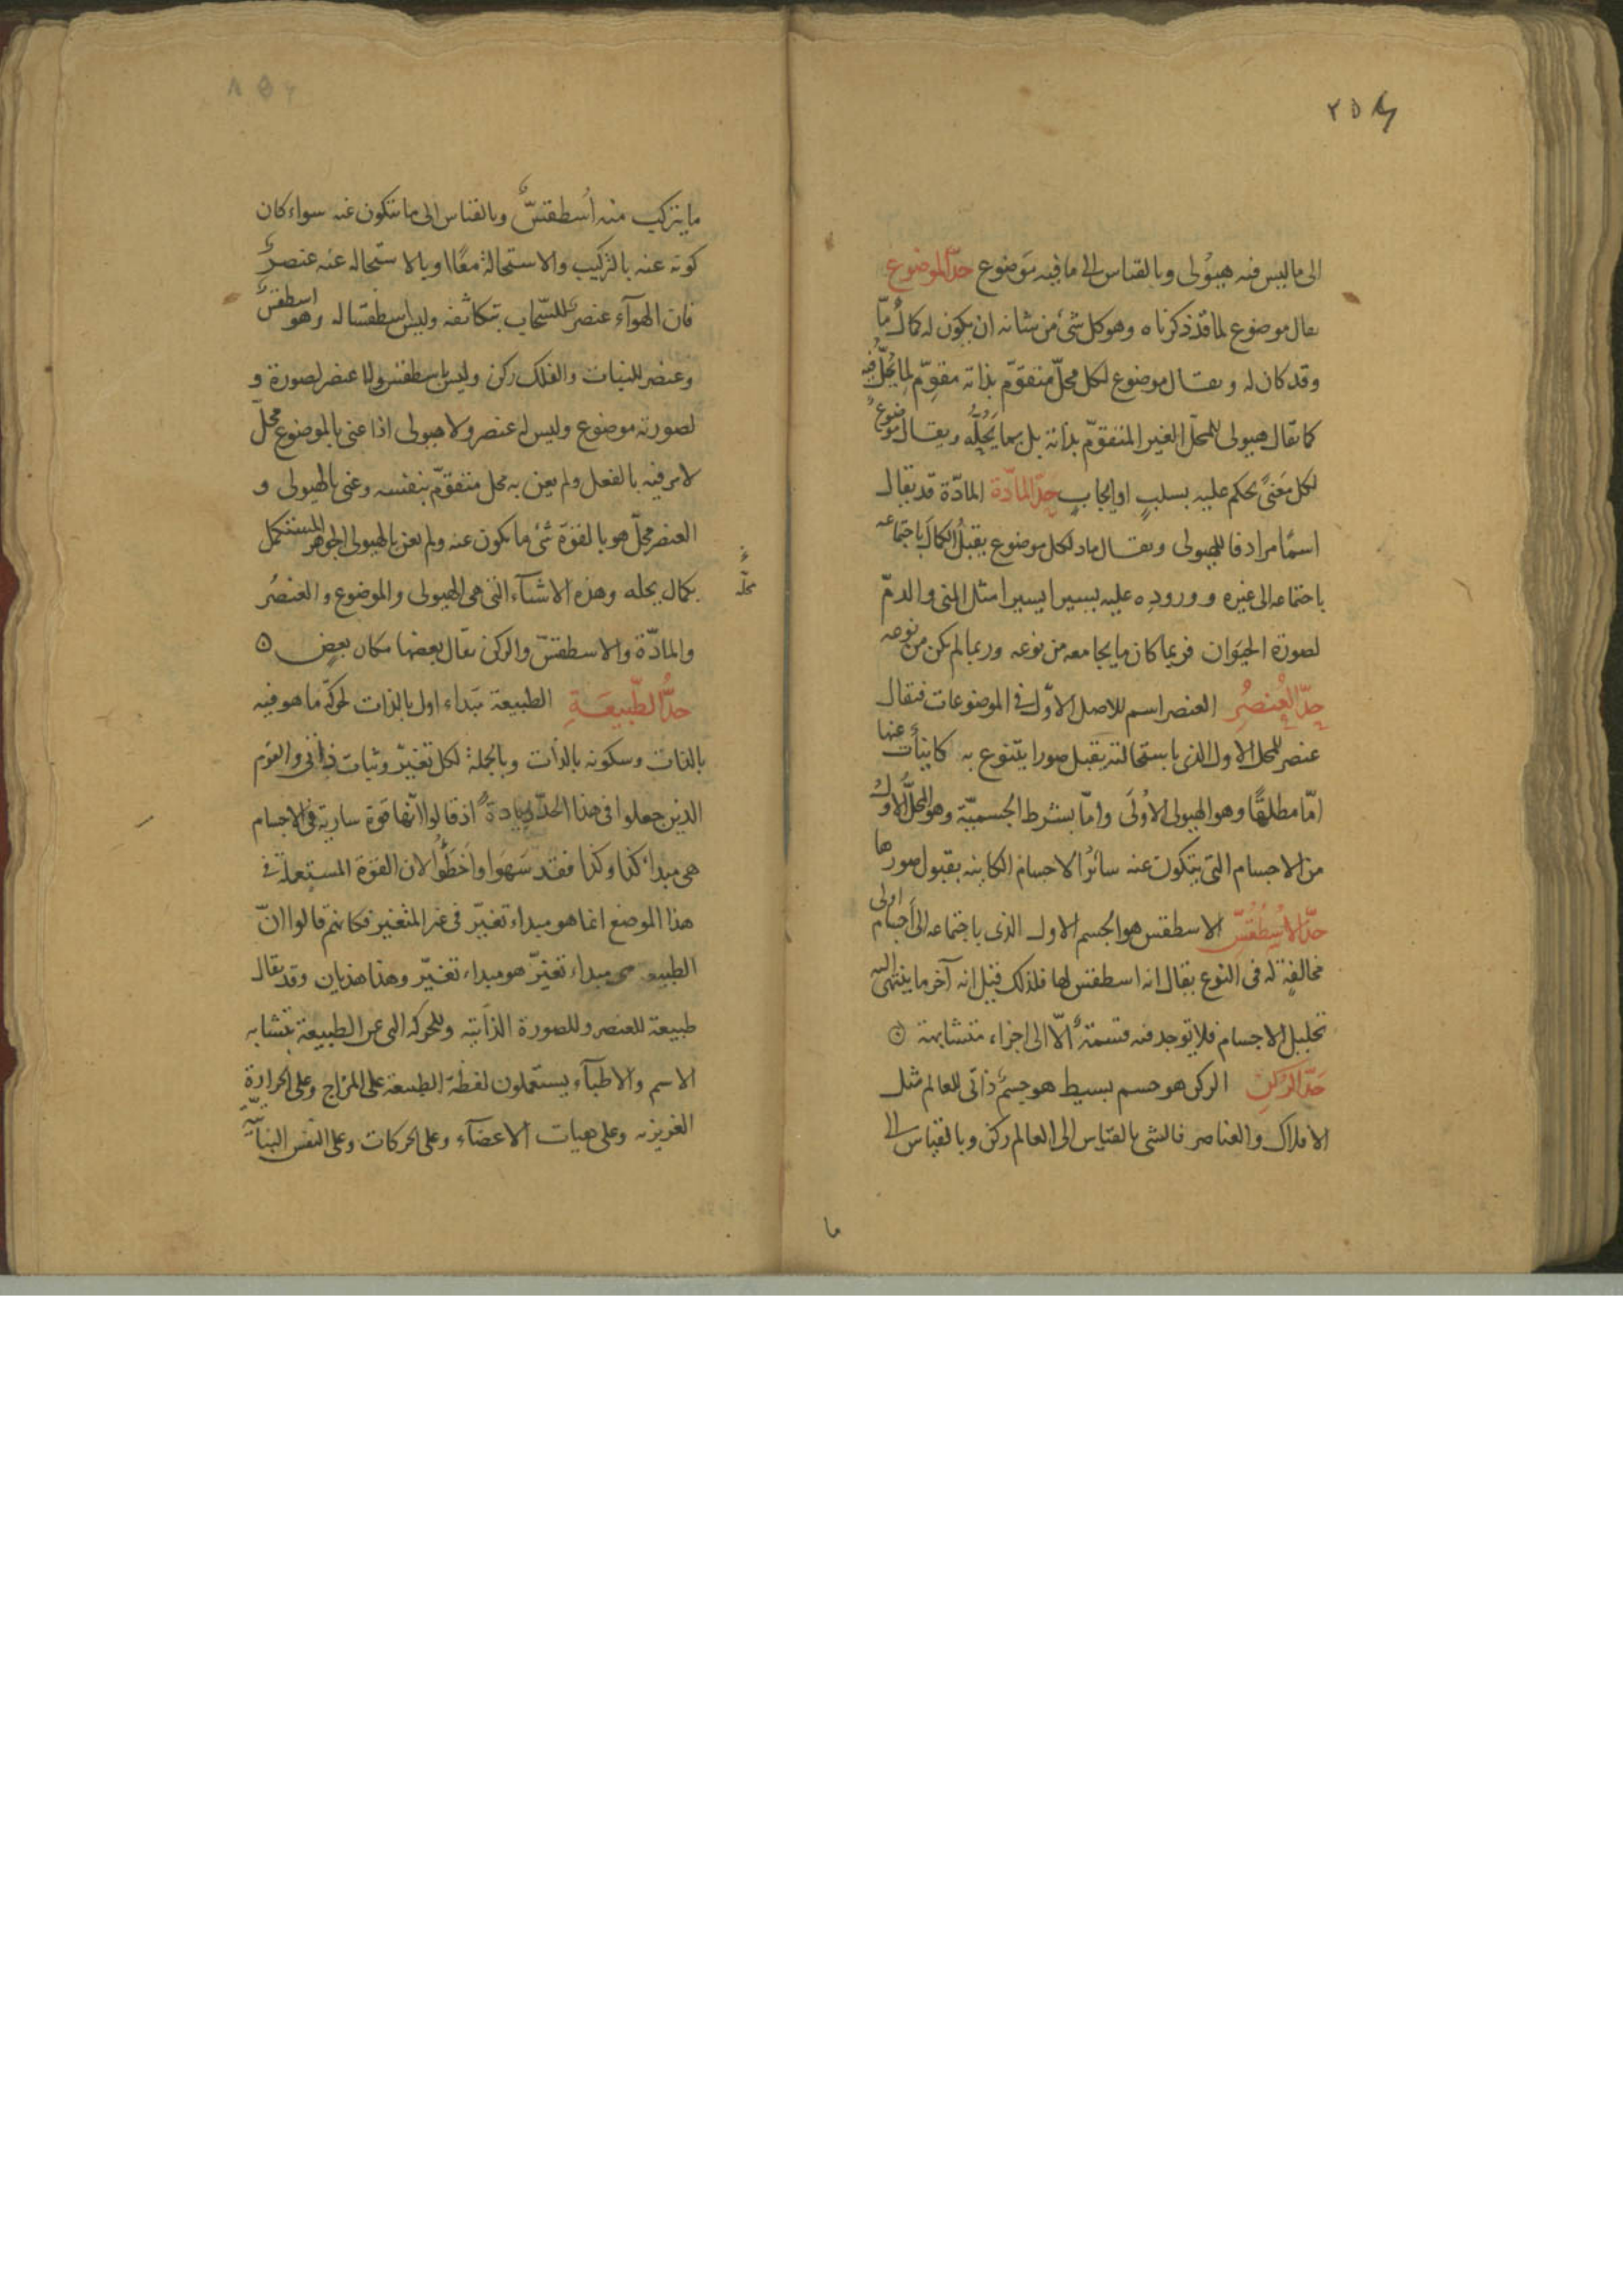 ٢٥٨
الى ما ليس فيه هيولى وبالقياس الى ما فيه موضوع حدّ الموضوع
يقال موضوع لما قد ذكرناه وهو كل شئ من شانه ان يكون له كمال ما
وقد كان له ويقال موضوع لكل محلّ متقوّم بذاته مقوّم لما يحلّ فيه
كما يقال هيولى للمحلّ الغير المتقوّم بذاته بل بما يحلّه ويقال موضوع
لكل معنىً يحكم عليه بسلبٍ او ايجابٍ حدّ المادّة المادّة قد يقال
اسمًا مرادفا للهيولى ويقال ماد لكل موضوع يقبل الكمال باجتماعه
باجتماعه الى غيره ووروده عليه يسيرا يسيرا مثل المنى والدمّ
لصورة الحيوان فربما كان ما يجامعه من نوعه وربما لم يكن من نوعه
حدّ العنصر العنصر اسم للاصل الاوّل فى الموضوعات فيقال
عنصر للمحل الاول الذى باستحالته يقبل صورا يتنوع به كاينات عنها
امّا مطلقًا وهو الهيولى الاولى وامّا بشرط الجسميّة وهو المحلّ الاول
من الاجسام التى يتكون عنه سائر الاجسام الكاينه بقبول صورها
حدّ الاسطقسّ الاسطقس هو الجسم الاول الذى باجتماعه الى اجسام اولى
مخالفةٍ له فى النوع يقال انه اسطقس لها فلذلك قيل انه آخر ما ينتهى اليه
تحليل الاجسام فلا توجد فيه قسمة الّا الى اجزاء متشابهة
حدّ الركن الركن هو جسم بسيط هو جسم ذاتى للعالم مثل
الافلاك والعناصر فالشى بالقياس الى العالم ركن وبالقياس الى
ما
ما يتركب منه اسطقسّ وبالقياس الى ما يتكون عنه سواء كان
كونه عنه بالتركيب والاستحالة معًا او بالاستحاله عنه عنصر
فان الهوآء عنصر للسّحاب بتكاثفه وليس اسطقسا له وهو اسطقس
وعنصر للنبات والفلك ركن وليس باسطقس ولا عنصر لصورة و
لصورته موضوع وليس له عنصر ولا هيولى اذا عنى بالموضوع محلّ
لامر فيه بالفعل ولم يعن به محل متقوّم بنفسه وعنى بالهيولى و
العنصر محلّ هو بالقوة شئ ما يكون عنه ولم يعن بالهيولى الجوهر المستكمل
محلّه
بكمال يحله وهذه الاشيآء التى هى الهيولى والموضوع والعنصر
والمادّة والاسطقسّ والركن يقال بعضها مكان بعضٍ
حدّ الطّبيعة الطبيعة مبداء اول بالذات لحركة ما هو فيه
بالذات وسكونه بالذات وبالجملة لكل تغيّر وثبات ذاتى والقوم
الذين جعلوا فى هذا الحدّ زيادة اذ قالوا انّها قوة سارية فى الاجسام
هى مبدا كذا وكذا فقد سهوا واخطؤا لان القوة المستعملة فى
هذا الموضع انما هو مبداء تغيّر فى غير المتغير فكانهم قالوا انّ
الطبيعة هى مبداء تغيّر هو مبداء تغيّر وهذا هذيان وقد يقال
طبيعة للعنصر وللصورة الذاتيه وللحركه التى عن الطبيعة بتشابه
الاسم والاطبآء يستعملون لفظة الطبيعة على المزاج وعلى الحرارة
الغريزيه وعلى هيات الاعضآء وعلى الحركات وعلى النفس النباتيّة